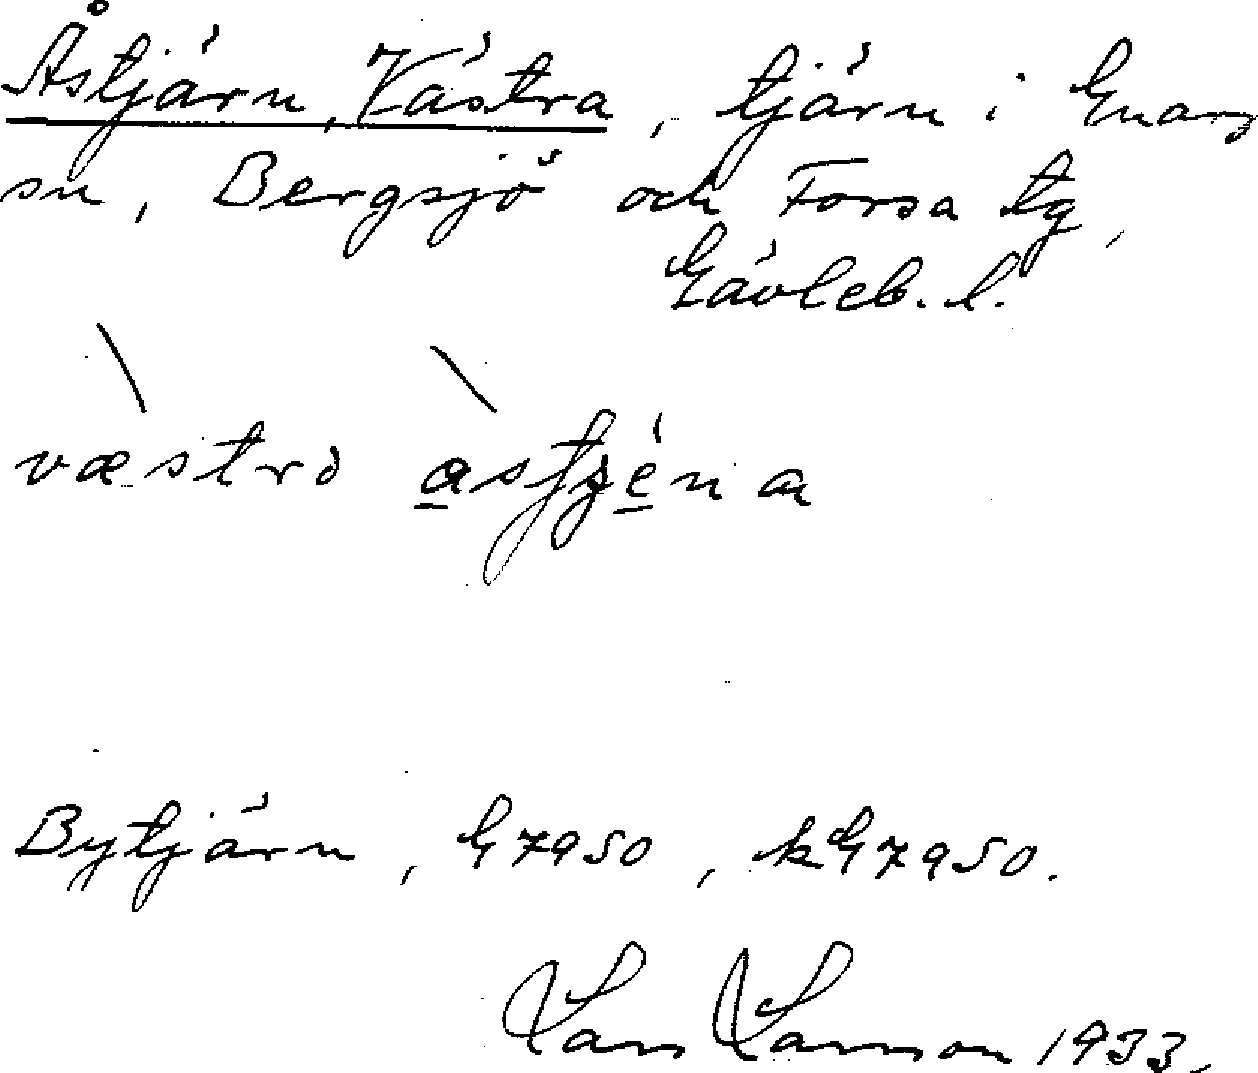 Åstjärn, Västra, tjärn i Gnarp
sn, Bergsjö och Forsa tg,
Gävleb. l.
Bytjärn, G7950, kG7950.
Lars Larsson 1933.